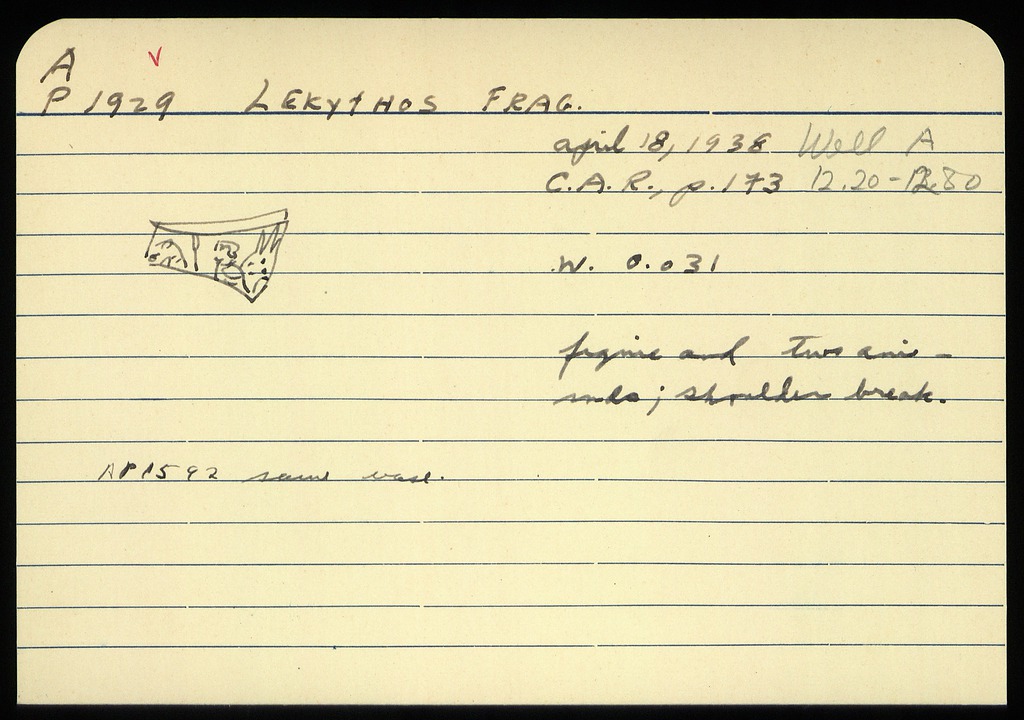 A ✓
P 1929 LEKYTHOS FRAG.
april 18, 1938 Well A
C.A.R., p. 173 12.20-12.80
W. 0.031
figure and two ani-
mals; shoulder break.
AP1592 same vase.